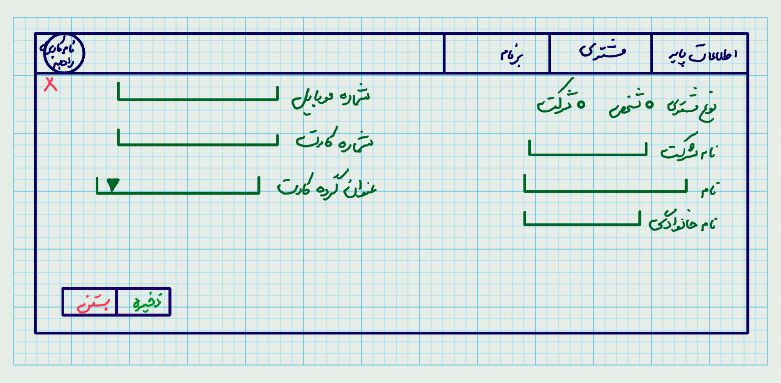 اطلاعات پایه
مشتری
برنام
نام کاربری
نوع مشتری شخص شرکت
نام شرکت
نام
نام خانوادگی
شماره موبایل
شماره کارت
عنوان گروه کارت
X
ذخیره
بستن